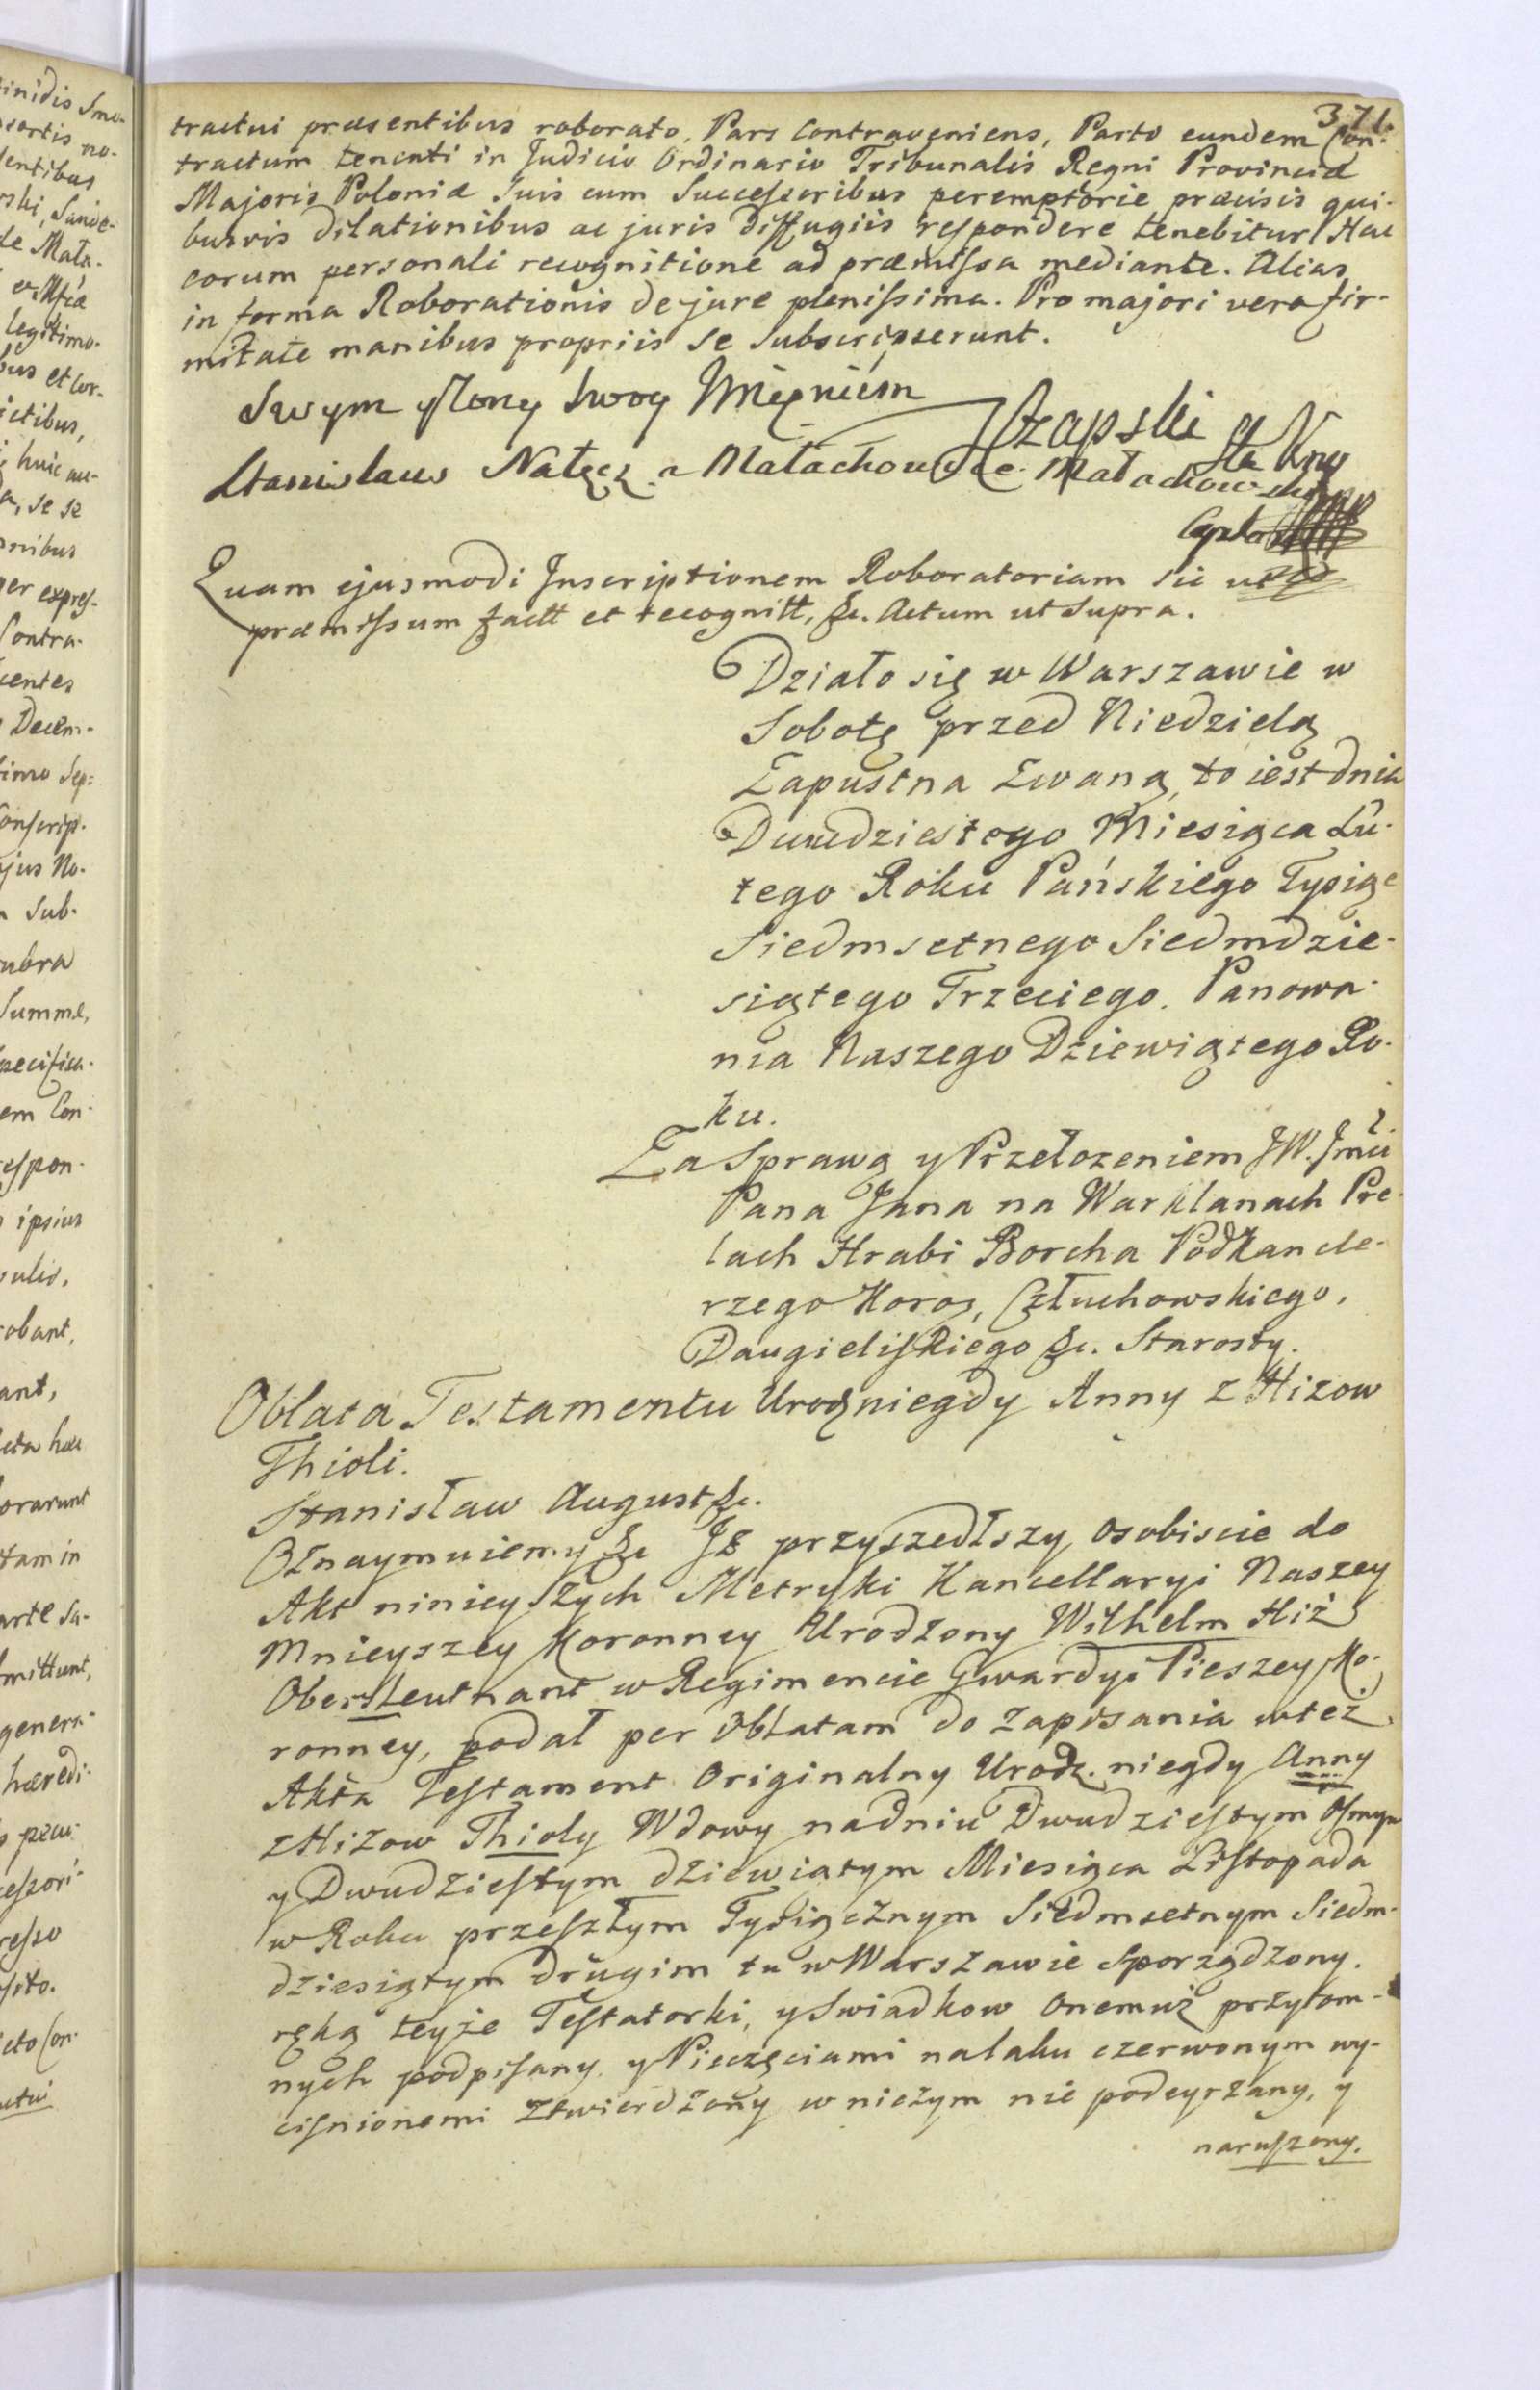 371.
tractui præsentibus roborato, Pars Contraveniens, Parti eundem Con-
tractum tenenti in Judicio Ordinario Tribunalis Regni Provinciæ
Majoris Poloniæ suis cum Successoribus peremptorie præcisis qui-
busvis dilationibus ac juris diffugiis respondere tenebitur Hac
eorum personali recognitione ad præmissa mediante. Alias
in forma Roborationis de jure plenissima. Pro majori vero fir-
mitate manibus propriis se subscripserunt.
Swym y Żony Swoy Imięniem Czapski
Stanislaus Nałęcz a Małachowice Małachowski
Quam ejusmodi Inscriptionem Roboratoriam sic ut
præmissum fact et recognitt, &c. Actum ut supra.
Działo się w Warszawie w
Sobotę przed Niedzielą
Zapustna Zwaną, to iest dnia
Dwudziestego Miesiąca Lu-
tego Roku Pańskiego Tysiąc
Siedmsetnego Siedmdzie-
siątego Trzeciego. Panowa-
nia Naszego Dziewiątego Ro-
ku.
Za Sprawą y Przełozeniem JW. Jmći
Pana Jana na Warklanach Pre-
lach Hrabi Borcha Podkancle-
rzego Koroñ, Człuchowskiego,
Daugieliskiego &c. Starosty.
Oblata Testamentu Urodz niegdy Anny z Hizow
Thioli.
Stanisław August &c.
Oznaymuiemy &c Jż przyszedłszy osobiscie do
Akt ninieyszych Metryki Kancellaryi Naszey
Mnieyszey Koronney Urodzony Wilhelm Hiż
Oberstleutnant w Regimencie Gwardyi Pieszey Ko-
ronney, podał per Oblatam do Zapisania w też
Akta Testament Originalny Urodz. niegdy Anny
z Hizow Thioly Wdowy nadniu Dwudziestym Osmym
y Dwudziestym dziewiatym Miesiąca Listopada
w Roku przeszłym Tysiącznym Siedmsetnym Siedm-
dziesiątym drugim tu w Warszawie Sporządzony.
ręką teyże Testatorki, y Swiadkow Onemuż przytom-
nych podpisany, y Pieczęciami nalaku czerwonym wy-
cisnionemi ztwierdzony w niczym nie podeyrzany, y
naruszony.